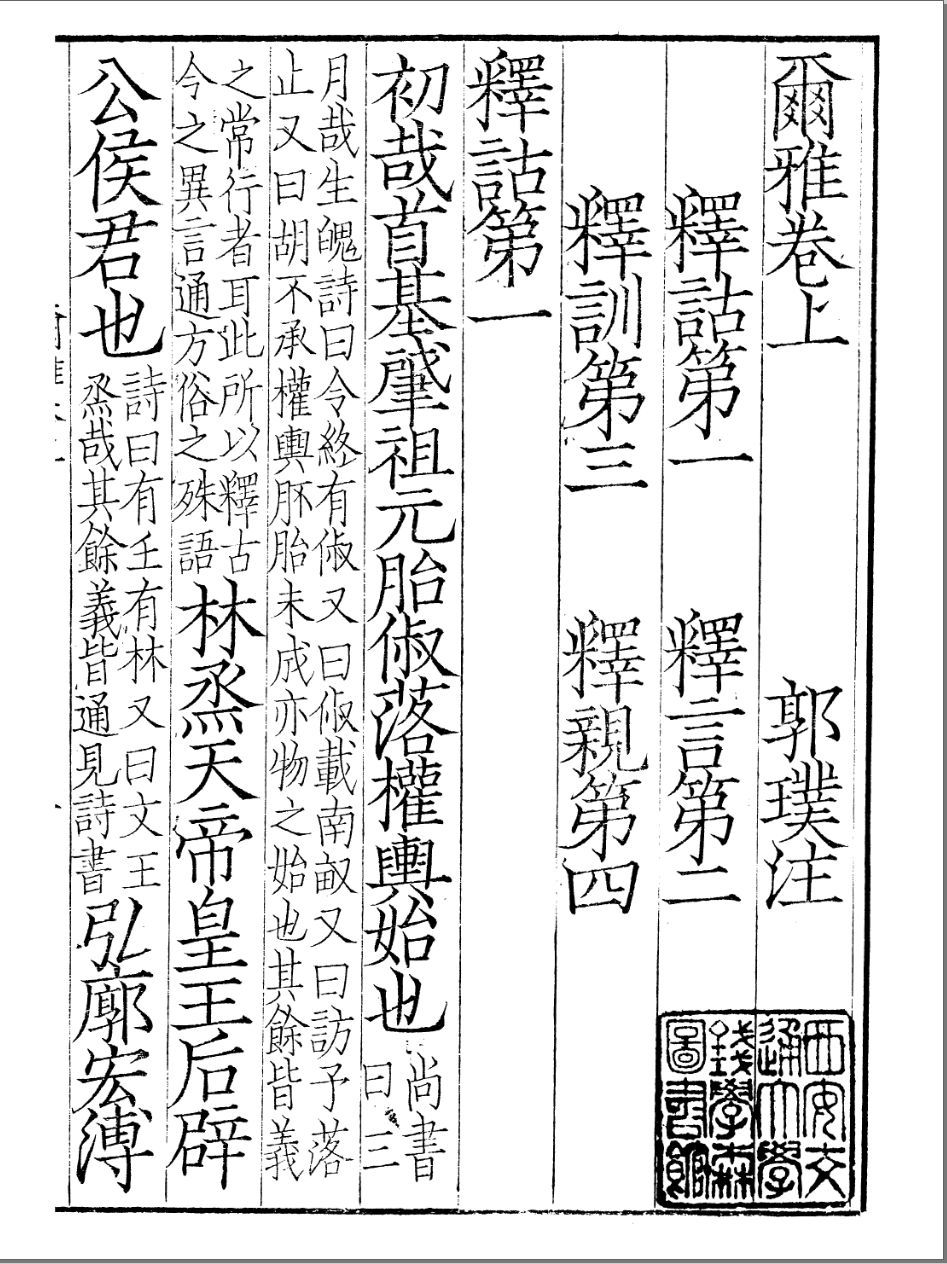 爾雅卷上 郭璞注
釋詁第一 釋言第二
釋訓第三 釋親第四
釋詁第一
初哉首基肇祖元胎俶落權輿始也 尚書曰三
月哉生魄詩曰令終有俶又曰俶載南畝又曰訪予落
止又曰胡不承權輿胚胎未成亦物之始也其餘皆義
之常行者耳此所以釋古
今之異言通方俗之殊語 林烝天帝皇王后辟
公侯君也 詩曰有壬有林又曰文王
烝哉其餘義皆通見詩書 弘廓宏溥
西安交
通大學
錢學森
圖書館